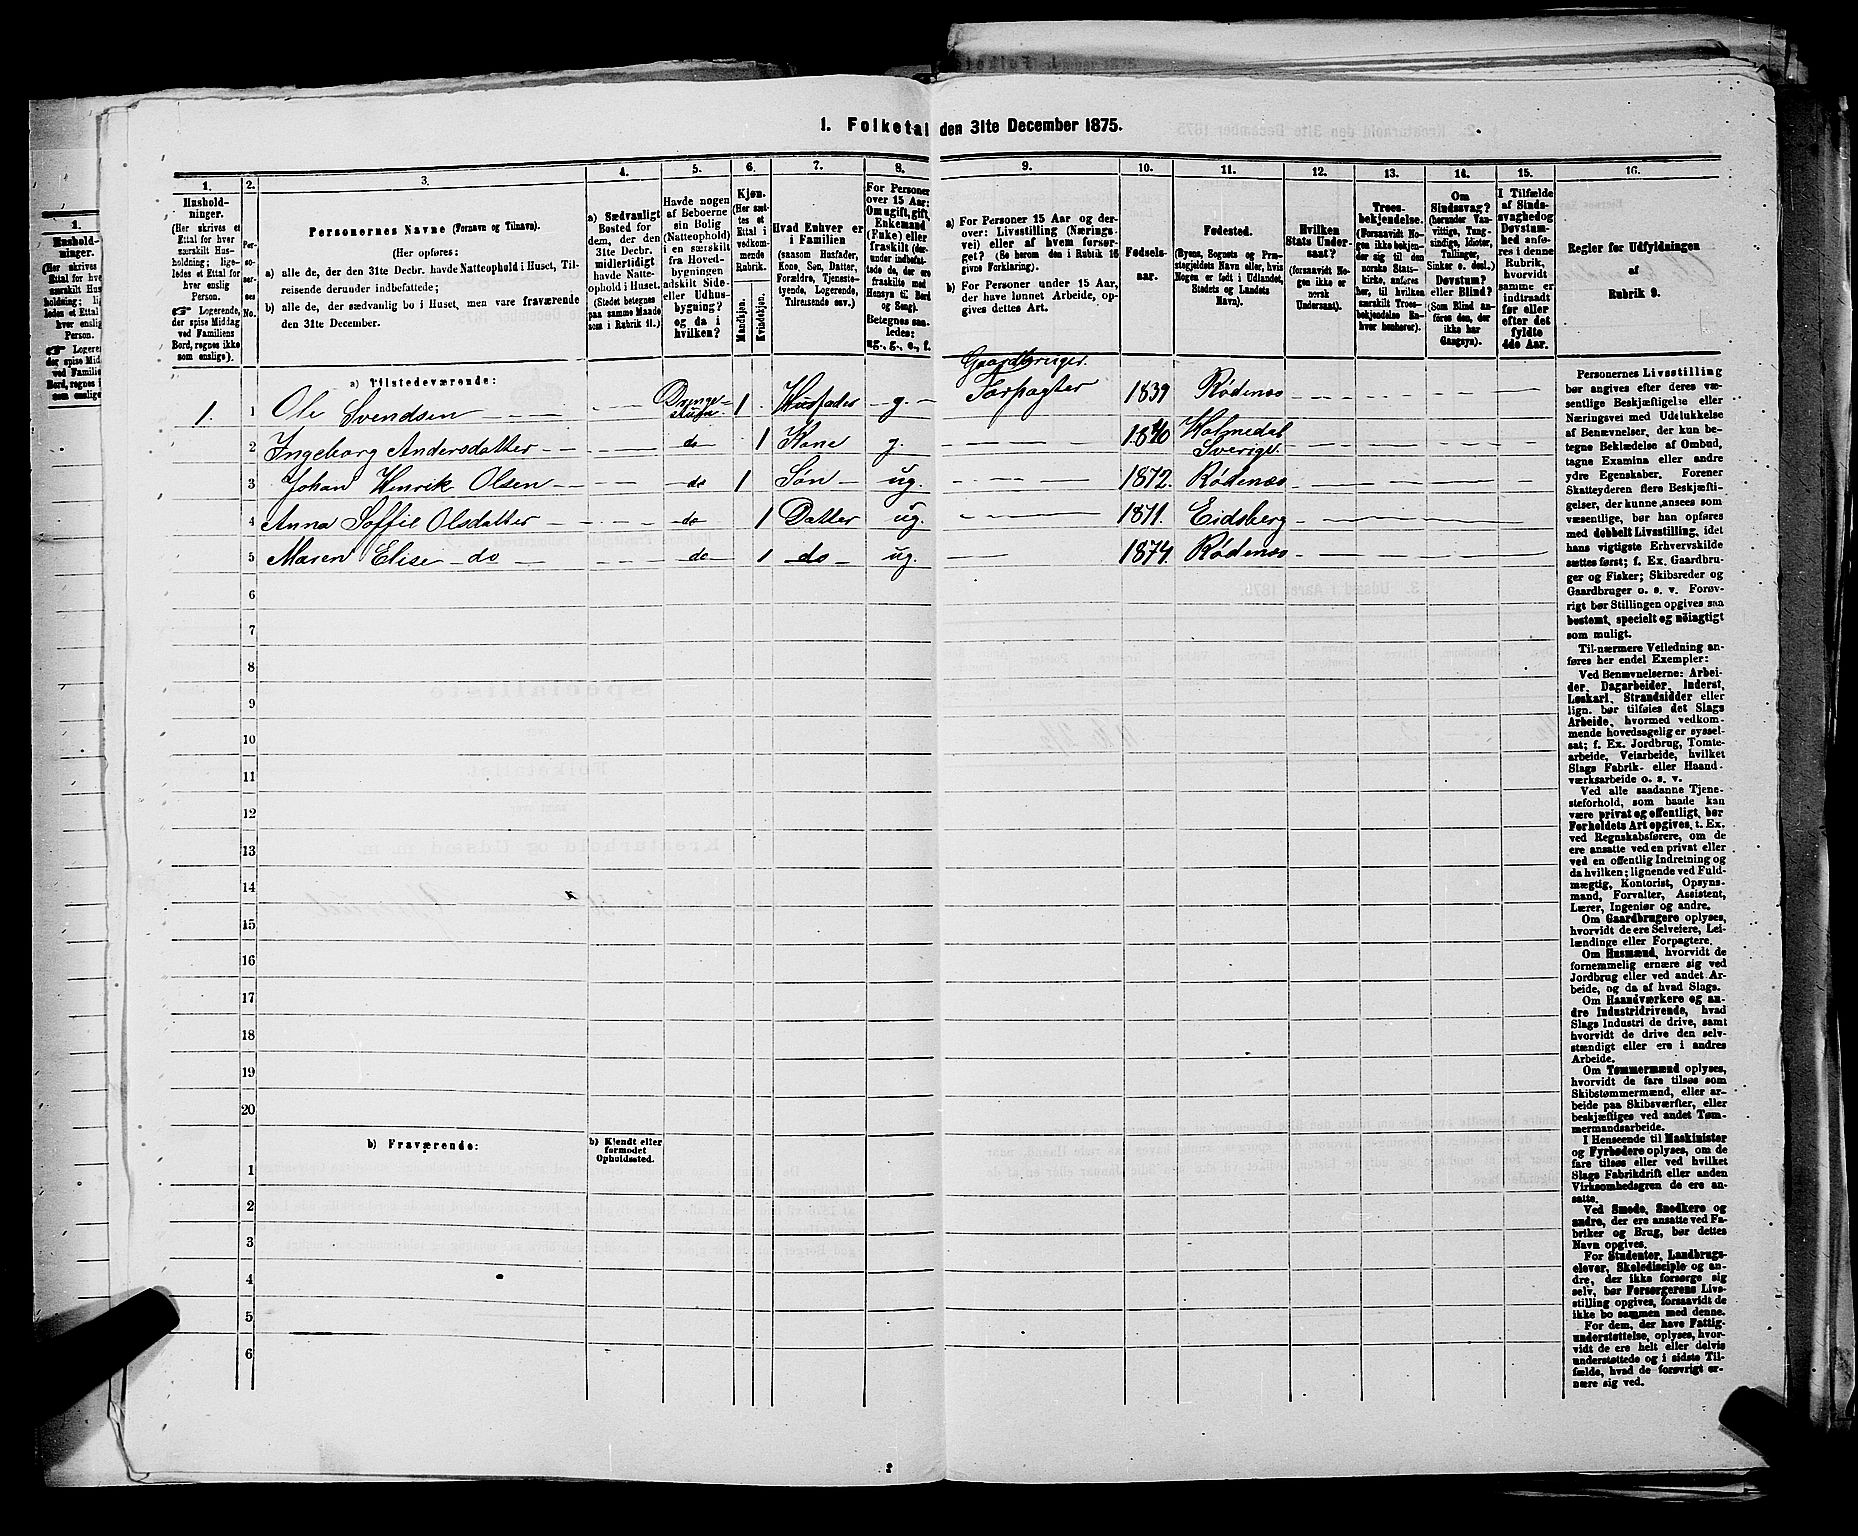 1. Folketal den 31te December 1875.
1.
Hushold-
ninger.
(Her skrives et
Ettal for hver
særskilt Hus-
holdning; lige-
ledes et Ettal for
hver enslig
Person.
Logerende,
der spise Middag
ved Familiens
Bord, regnes ikke
som enslige).
2.
Per-
so-
ner-
nes
No.
3.
Personernes Navne (Fornavn og Tilnavn).
(Her opføres:
a) alle de, der den 31te Decbr. havde Natteophold i Huset, Til-
reisende derunder indbefattede;
b) alle de, der sædvanlig bo i Huset, men vare fraværende
den 31te December.
4.
a) Sædvanligt
Bosted for
dem, der den
31te Decbr.
midlertidigt
havde Natte-
ophold i Huset.
(Stedet betegnes
paa samme Maade
som i Rubrik 11.)
5.
Havde nogen
af Beboerne
sin Bolig
(Natteophold)
i en særskilt
fra Hoved-
bygningen
adskilt Side-
eller Udhus-
bygning?
og da i
hvilken?
6.
Kjøn.
(Her sæt-
tes et
Ettal i
vedkom-
mende
Rubrik.
Mandkjøn.
Kvindekjøn.
7.
Hvad Enhver er
i Familien
(saasom Husfader,
Kone, Søn, Datter,
Forældre, Tjeneste-
tyende, Logerende,
Tilreisende osv.)
8.
For Personer
over 15 Aar:
Om ugift, gift,
Enkemand
(Enke) eller
fraskilt (der-
under indbefat-
tede de, der ere
fraskilte med
Hensyn til Bord
og Seng).
Betegnes saa-
ledes:
ug., g., e., f.
9.
a) For Personer 15 Aar og der-
over: Livsstilling (Nærings-
vei) eller af hvem forsør-
get? (Se herom den i Rubrik 16
givne Forklaring).
b) For Personer under 15 Aar,
der have lønnet Arbeide, op-
gives dettes Art.
10.
Fødsels-
aar.
11.
Fødested.
(Byens, Sognets og Præ-
stegjeldets Navn eller, hvis
Nogen er født i Udlandet,
Stedets og Landets
Navn).
12.
Hvilken
Stats Under-
saat?
(forsaavidt No-
gen ikke er
norsk
Undersaat).
13.
Troes-
bekjendelse.
(Forsaavidt No-
gen ikke bekjen-
der sig til den
norske Stats-
kirke, anføres
her, til hvilken
særskilt Troes-
bekjendelse En-
hver henhører).
14.
Om
Sindssvag?
(herunder Van-
vittige, Tung-
sindige, Idioter,
Tullinger,
Sinker o. desl.)
Døvstum?
eller Blind?
(Som Blind an-
føres den, der
ikke har
Gangsyn).
15.
I Tilfælde
af Sinds-
svaghed og
Døvstum-
hed anfø-
res i denne
Rubrik,
hvorvidt
samme er
indtraadt
før eller
efter det
fyldte
4de Aar.
16.
Regler for Udfyldningen
af
Rubrik 9.
a) Tilstedeværende:
1. 1 Ole Svendsen Drenge-stuen 1 Husfader g. Gaardbruger Forpagter 1839 Rødenæs
2 Ingeborg Andersdatter do 1 Kone g. 1840 Holmedal Sverige.
3 Johan Henrik Olsen do 1 Søn ug. 1872. Rødenæs
4 Anna Soffie Olsdatter do 1 Datter ug. 1871. Eidsberg
5 Maren Elise do do 1 do ug. 1874. Rødenæs
6
7
8
9
10
11
12
13
14
15
16
17
18
19
20
b) Fraværende:
b) Kjendt eller
formodet
Opholdssted.
1
2
3
4
5
6
Personernes Livsstilling
bør angives efter deres væ-
sentlige Beskjæftigelse eller
Næringsvei med Udelukkelse
af Benævnelser, der kun be-
tegne Beklædelse af Ombud,
tagne Examina eller andre
ydre Egenskaber. Forener
Skatteyderen flere Beskjæfti-
gelser, der kunne ansees som
væsentlige, bør han opføres
med dobbelt Livsstilling, idet
hans vigtigste Erhvervskilde
sættes først; f. Ex. Gaardbru-
ger og Fisker; Skibsreder og
Gaardbruger o. s. v. Forøv-
rigt bør Stillingen opgives saa
bestemt, specielt og nöiagtigt
som muligt.
Til nærmere Veiledning an-
føres her endel Exempler:
Ved Benævnelserne: Arbei-
der, Dagarbeider, Inderst,
Løskarl, Strandsidder eller
lign. bør tilføies det Slags
Arbeide, hvormed vedkom-
mende hovedsagelig er syssel-
sat; f. Ex. Jordbrug, Tomte-
arbeide, Veiarbeide, hvilket
Slags Fabrik- eller Haand-
værksarbeide o. s. v.
Ved alle saadanne Tjene-
steforhold, som baade kan
være privat og offentligt, bør
Forholdets Art opgives, t. Ex.
ved Regnskabsførere, om de
ere ansatte ved en privat eller
ved en offentlig Indretning og
da hvilken; lignende ved Fuld-
mægtig, Kontorist, Opsyns-
mand, Forvalter, Assistent,
Lærer, Ingeniør og andre.
Om Gaardbrugere oplyses,
hvorvidt de ere Selveiere, Lei-
lændinge eller Forpagtere.
Om Husmænd, hvorvidt de
fornemmelig ernære sig ved
Jordbrug eller ved andet Ar-
beide, og da af hvad Slags.
Om Haandværkere og an-
dre Industridrivende, hvad
Slags Industri de drive, samt
hvorvidt de drive den selv-
stændigt eller ere i andres
Arbeide.
Om Tømmermænd oplyses,
hvorvidt de fare tilsøs som
Skibstømmermænd, eller ar-
beide paa Skibsværfter, eller
beskjæftiges ved andet Tøm-
mermandsarbeide.
I Henseende til Maskinister
og Fyrbødere oplyses, om de
fare tilsøs eller ved hvilket
Slags Fabrikdrift eller anden
Virksomhedsgren de ere an-
satte.
Ved Smede, Snedkere og
andre, der ere ansatte ved Fa-
briker og Brug, bør dettes
Navn opgives.
For Studenter, Landbrugs-
elever, Skoledisciple og an-
dre, der ikke forsørge sig
selv, bør Forsørgerens Livs-
stilling opgives, forsaavidt de
ikke bo sammen med denne.
For dem, der have Fattig-
understøttelse, oplyses, hvor-
vidt de ere helt eller delvis
understøttede og i sidste Til-
fælde, hvad de forøvrigt er-
nære sig ved.